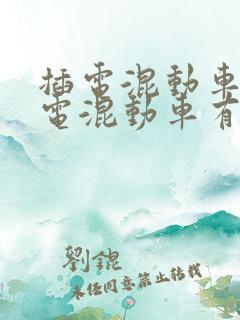 插電混動車
電混動車有
劉錕
未經同意禁止轉載